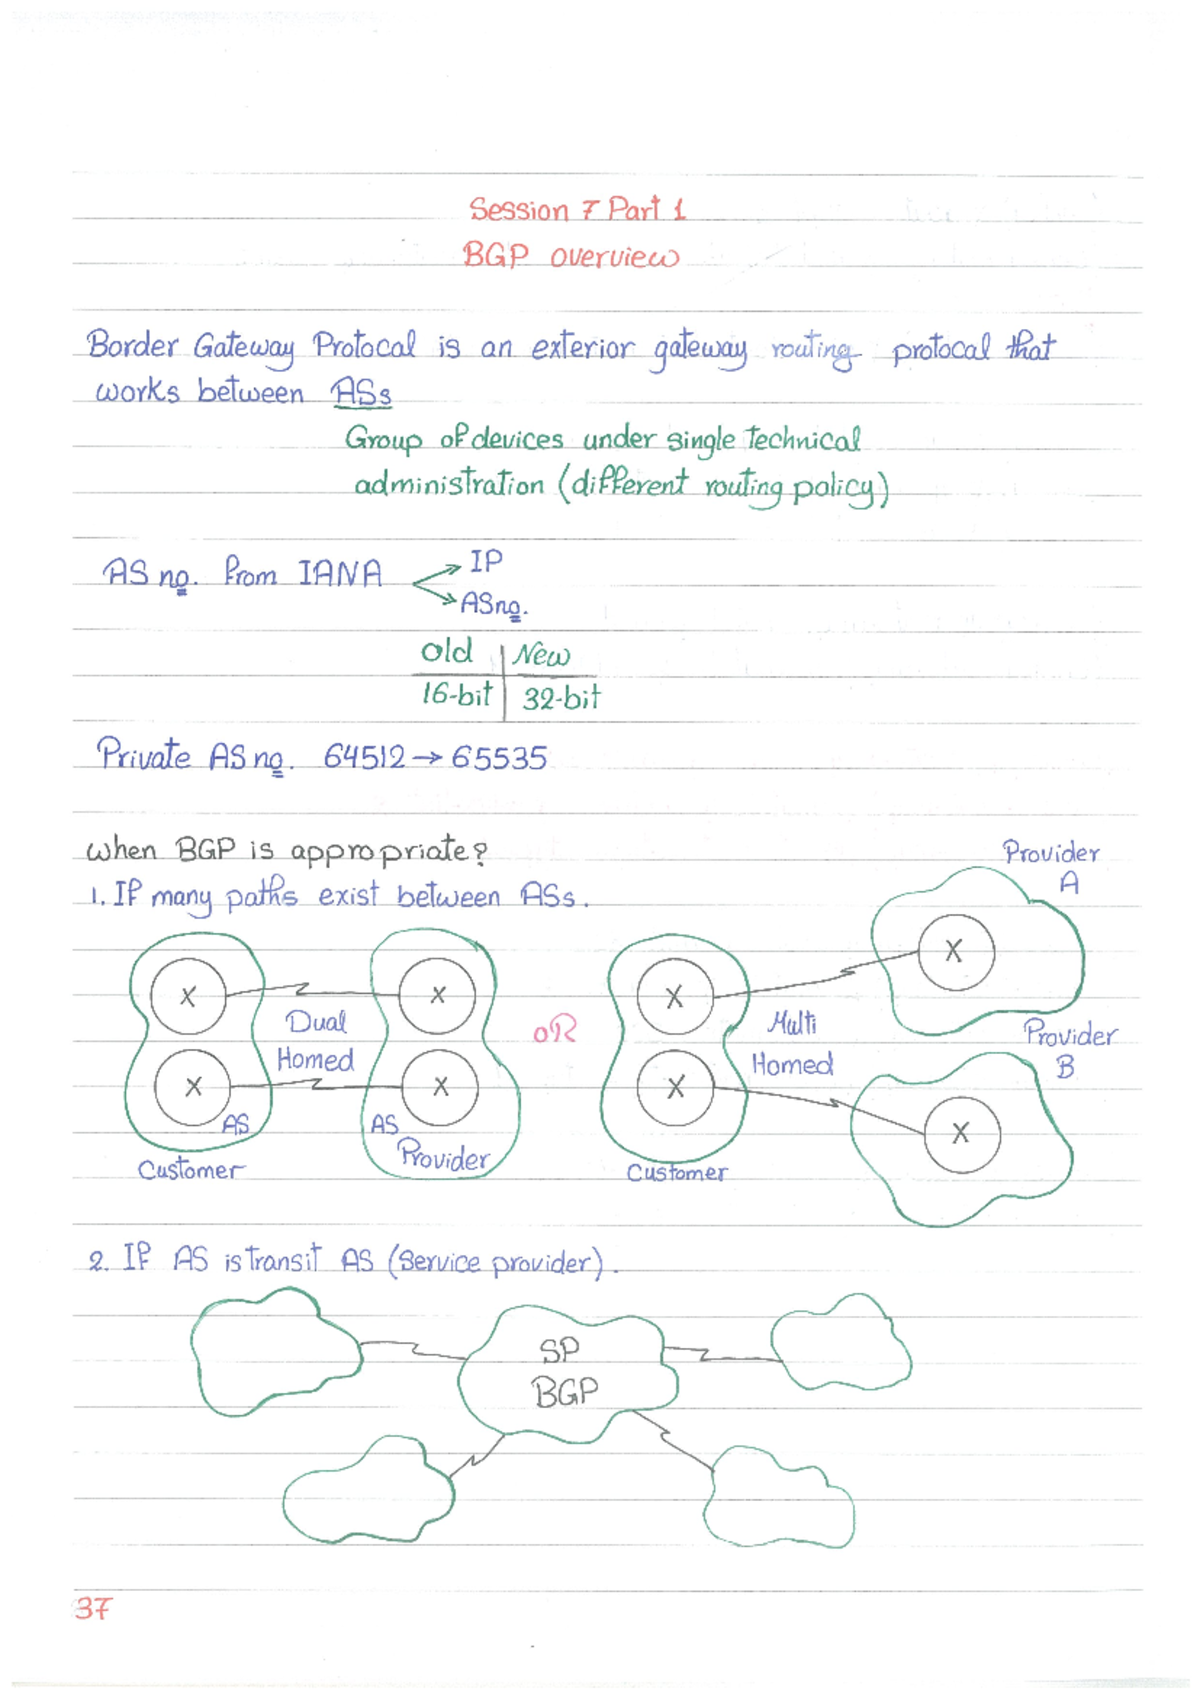 Session 7 Part 1
BGP overview
Border Gateway Protocal is an exterior gateway routing protocal that
works between ASs
Group of devices under single technical
administration (different routing policy)
AS no. from IANA
IP
AS no.
old | New
16-bit | 32-bit
Private AS no. 64512 → 65535
when BGP is appropriate?
1. If many paths exist between ASs.
Provider
A
X
X
X
X
X
Dual
Homed
OR
Multi
Homed
Provider
B
X
X
X
X
X
AS
AS
Customer
Provider
Customer
2. If AS is transit AS (Service provider).
SP
BGP
37